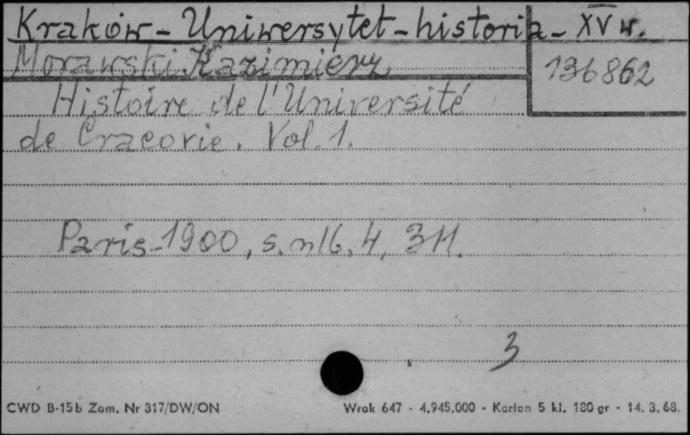 Kraków - Uniwersytet - historia - XV w.
Morawski Kazimierz
136862
Histoire de l'Université
de Cracovie. Vol. 1.
Paris 1900, s. nlb. 4, 311.
3
CWD B-15b Zam. Nr 317/DW/ON Wrak 647 - 4.945.000 - Karton 5 kl. 180 gr - 14. 3. 68.